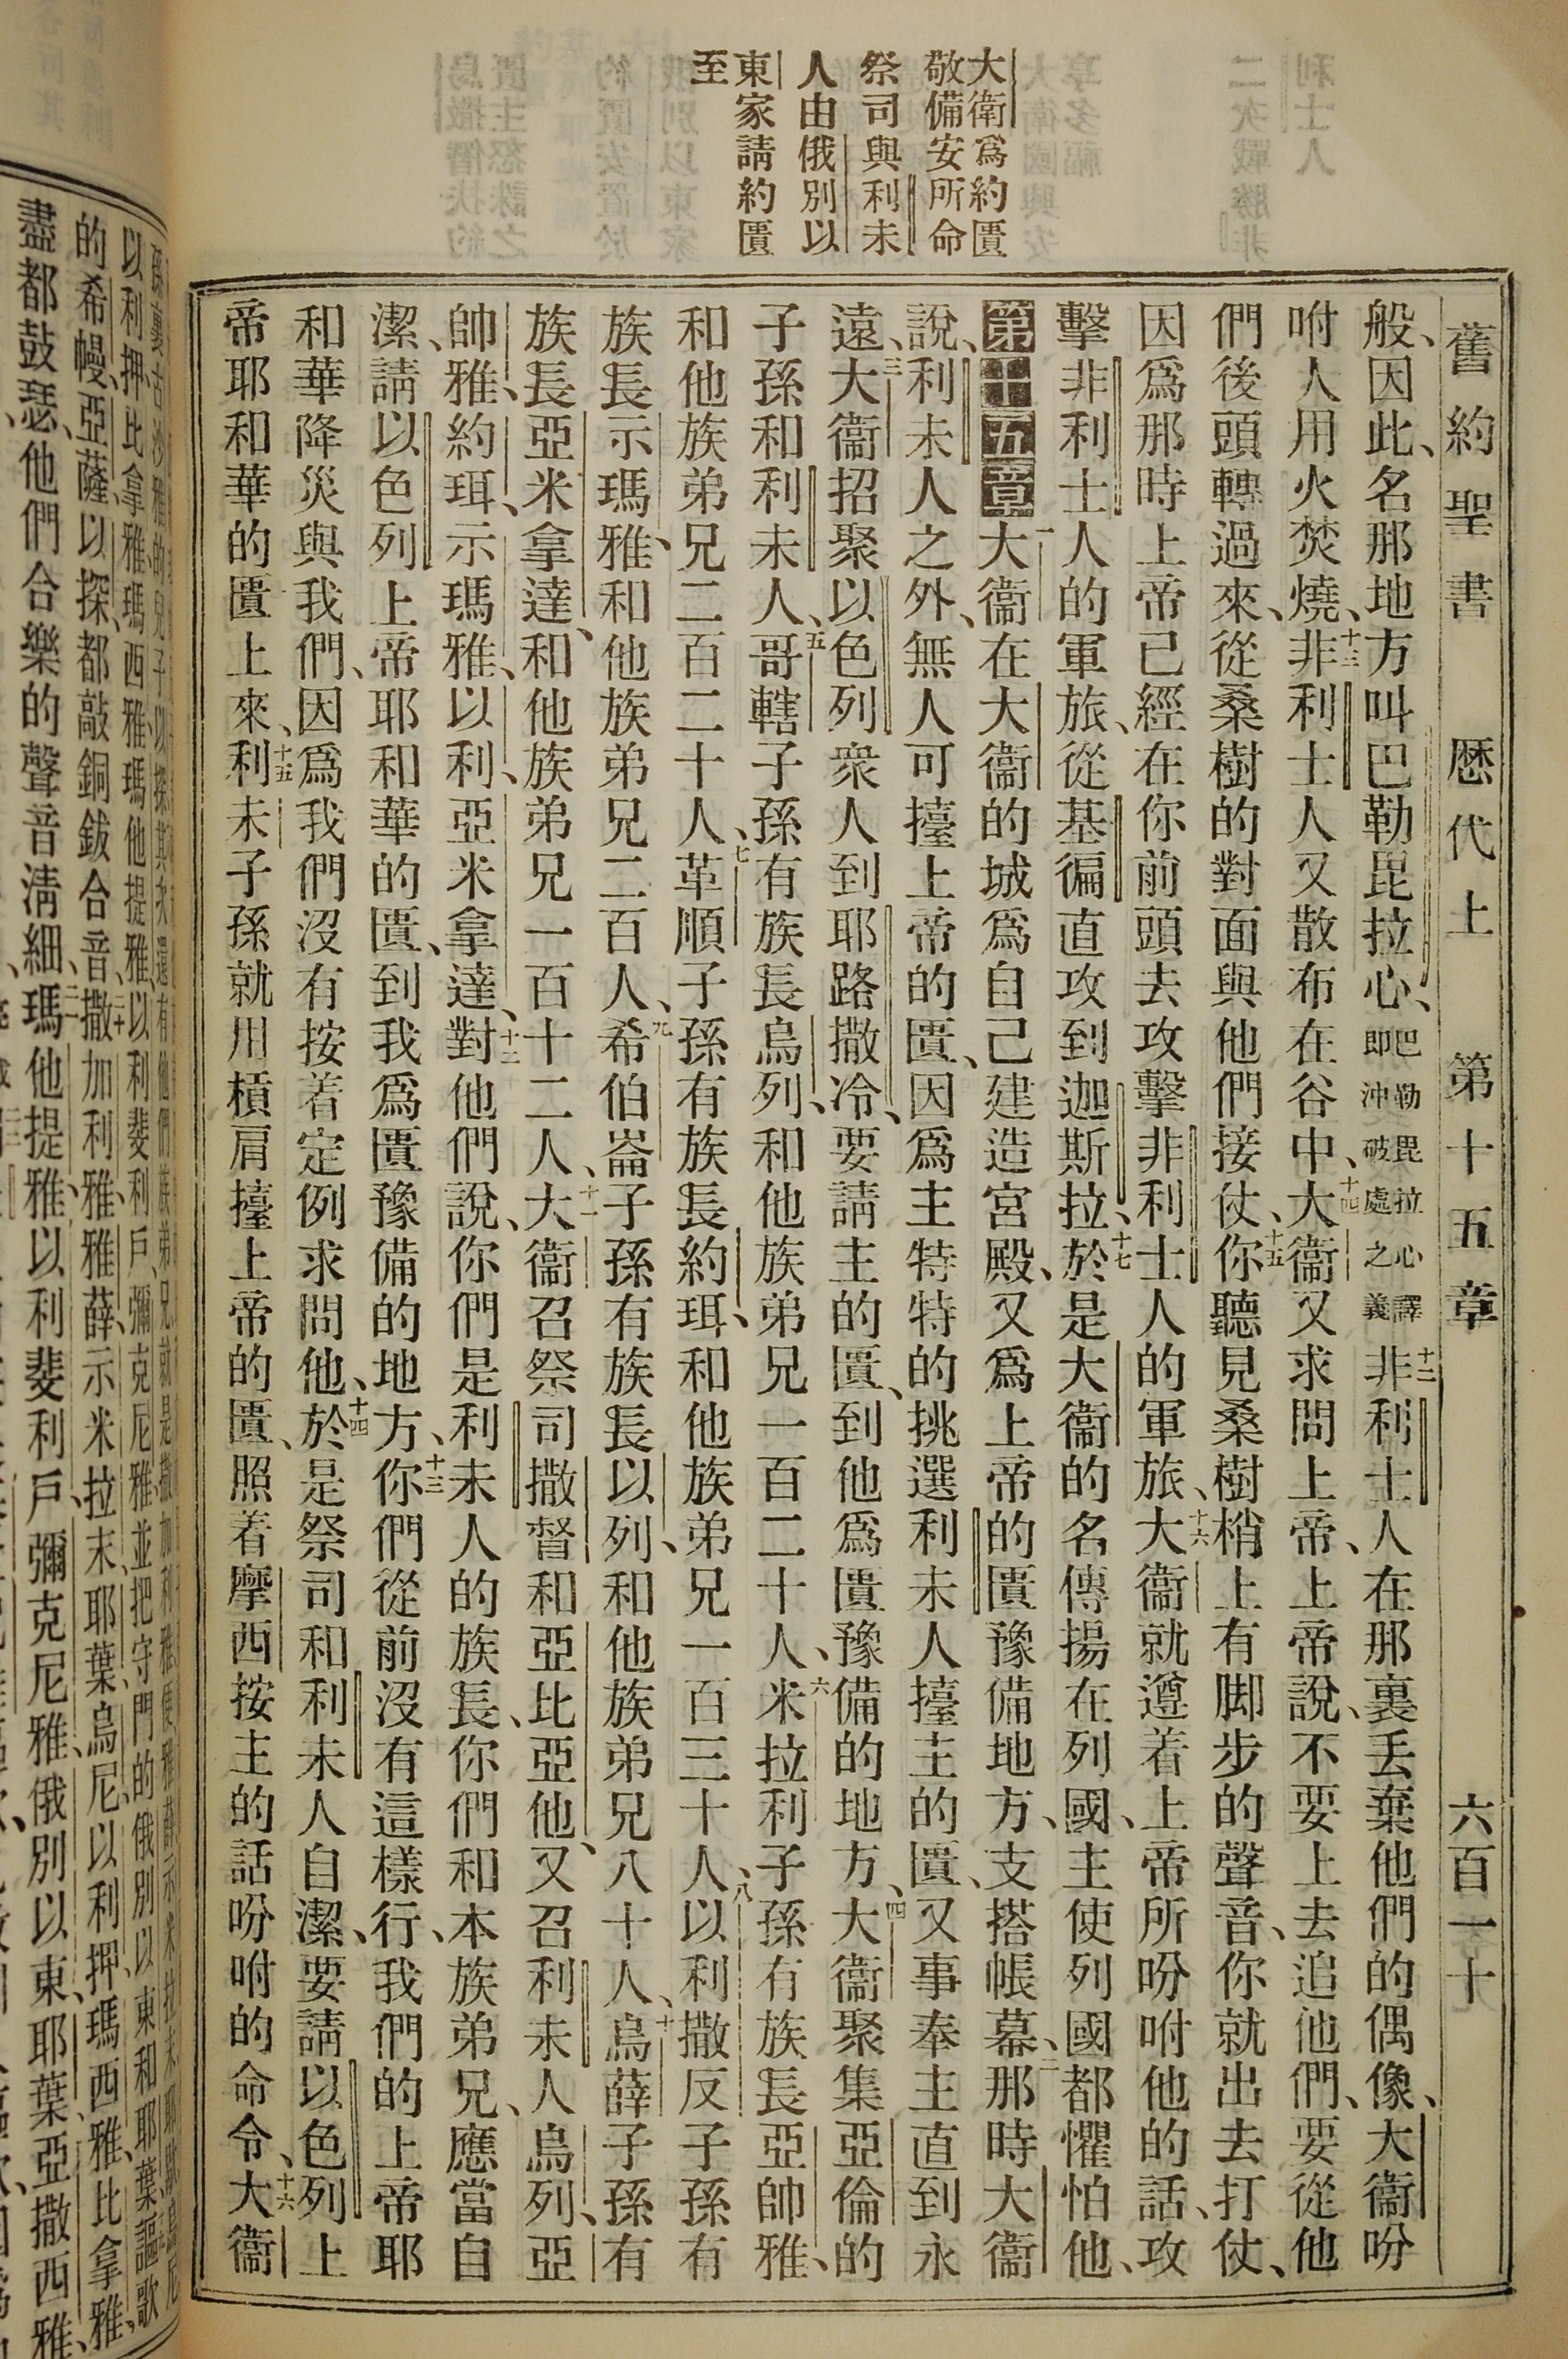 大衛爲約匱
敬備安所命
祭司與利未
人由俄別以
東家請約匱
至
舊約聖書 歷代上 第十五章 六百一十
般、因此、名那地方叫巴勒毘拉心、巴勒毘拉心譯卽沖破處之義十二非利士人在那裏丢棄他們的偶像、大衛吩
咐人用火焚燒、十三非利士人又散布在谷中、十四大衛又求問上帝、上帝說、不要上去追他們、要從他
們後頭轉過來、從桑樹的對面與他們接仗、十五你聽見桑樹梢上有脚步的聲音、你就出去打仗、
因爲那時上帝已經在你前頭去攻擊非利士人的軍旅、十六大衛就遵着上帝所吩咐他的話、攻
擊非利士人的軍旅、從基徧直攻到迦斯拉、十七於是大衛的名傳揚在列國、主使列國都懼怕他、
第十五章 一大衛在大衛的城爲自己建造宮殿、又爲上帝的匱豫備地方、支搭帳幕、二那時大衛
說、利未人之外、無人可擡上帝的匱、因爲主特特的挑選利未人擡主的匱、又事奉主直到永
遠、三大衛招聚以色列衆人到耶路撒冷、要請主的匱、到他爲匱豫備的地方、四大衛聚集亞倫的
子孫和利未人、五哥轄子孫有族長烏列、和他族弟兄一百二十人、六米拉利子孫有族長亞帥雅、
和他族弟兄二百二十人、七革順子孫有族長約珥、和他族弟兄一百三十人、八以利撒反子孫有
族長示瑪雅、和他族弟兄二百人、九希伯崙子孫有族長以列、和他族弟兄八十人、十烏薛子孫有
族長亞米拿達、和他族弟兄一百十二人、十一大衛召祭司撒督和亞比亞他、又召利未人烏列、亞
帥雅、約珥、示瑪雅、以利、亞米拿達、十二對他們說、你們是利未人的族長、你們和本族弟兄、應當自
潔、請以色列上帝耶和華的匱、到我爲匱豫備的地方、十三你們從前沒有這樣行、我們的上帝耶
和華降災與我們、因爲我們沒有按着定例求問他、十四於是祭司和利未人自潔、要請以色列上
帝耶和華的匱上來、十五利未子孫就用槓肩擡上帝的匱、照着摩西按主的話吩咐的命令、十六大衛
以利押、比拿雅、瑪西雅、瑪他提雅、以利斐利戶、彌克尼雅、並把守門的俄別以東和耶葉、謳歌
的希幔、亞薩、以探、都敲銅鈸合音、二十撒加利雅、雅薛、示米拉末、耶葉、烏尼、以利押、瑪西雅、比拿雅、
盡都鼓瑟、他們合樂的聲音淸細、瑪他提雅、以利斐利戶、彌克尼雅、俄別以東、耶葉、亞撒西雅、